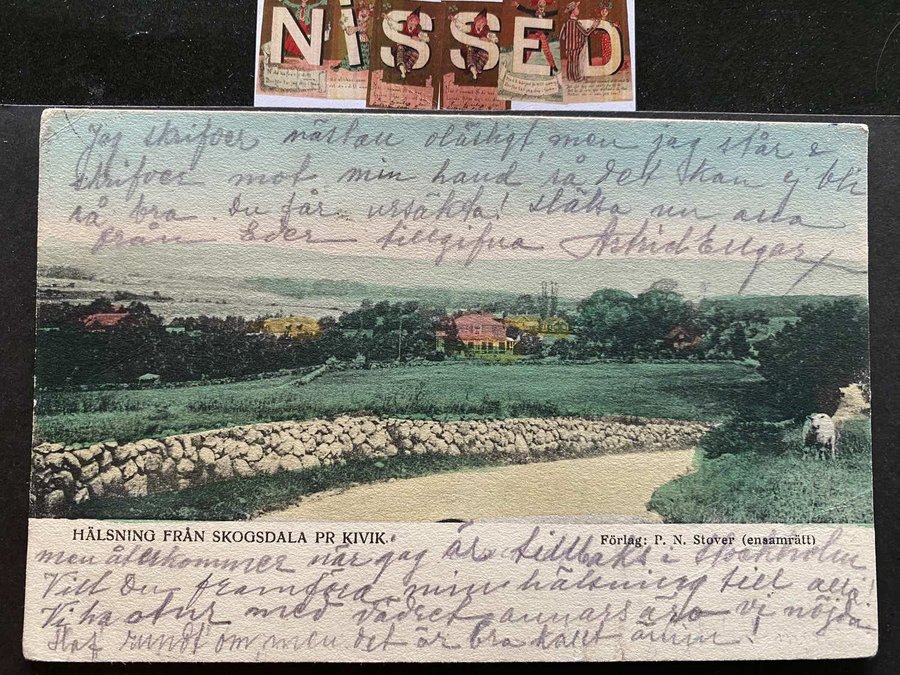 NISSED
Jag skrifver nästan oläsligt, men jag står o
skrifver mot min hand så det kan ej bli
så bra. Du får ursäkta! Hälsa nu alla
från Eder tillgifna Astrid
HÄLSNING FRÅN SKOGSDALA PR KIVIK.
Förlag: P. N. Stover (ensamrätt)
men återkommer när jag är tillbaks i Stockholm
Vill Du framföra min hälsning till alla!
Vi ha otur med vädret annars äro vi nöjda.
Haf rundt om, men det är bra kallt ännu!